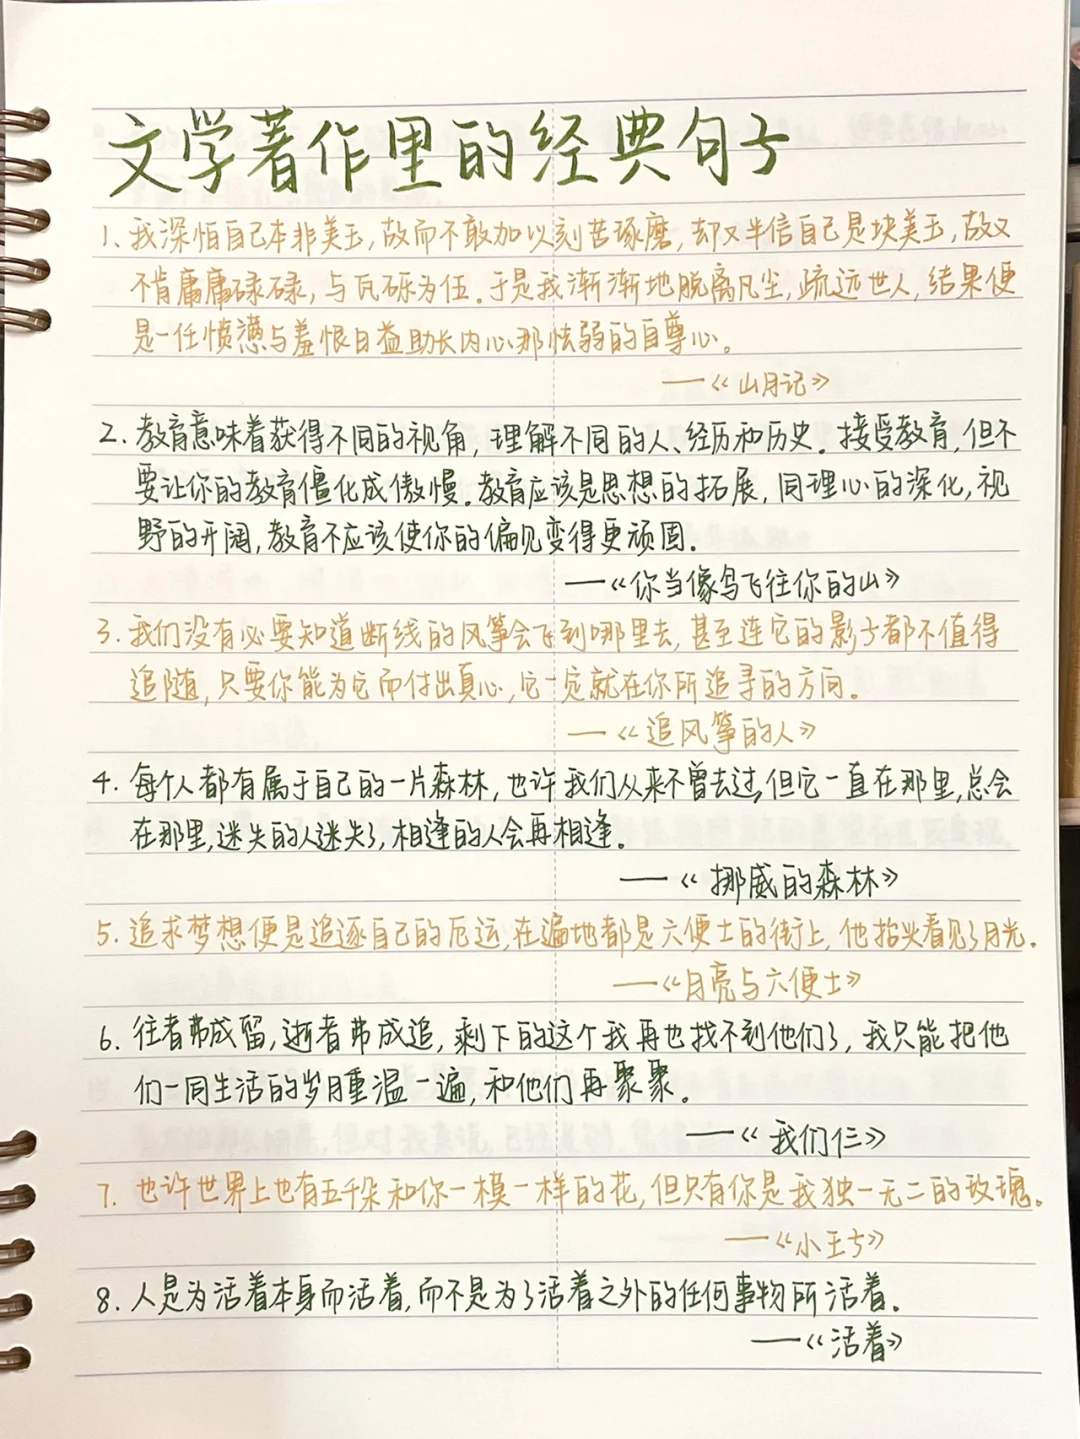 文学著作里的经典句子
1、我深怕自己本非美玉,故而不敢加以刻苦琢磨,却又半信自己是块美玉,故又
不肯庸庸碌碌,与瓦砾为伍.于是我渐渐地脱离凡尘,疏远世人,结果便
是一任愤懑与羞恨日益助长内心那怯弱的自尊心。
——《山月记》
2.教育意味着获得不同的视角,理解不同的人、经历和历史.接受教育,但不
要让你的教育僵化成傲慢.教育应该是思想的拓展,同理心的深化,视
野的开阔,教育不应该使你的偏见变得更顽固.
——《你当像鸟飞往你的山》
3.我们没有必要知道断线的风筝会飞到哪里去,甚至连它的影子都不值得
追随,只要你能为它而付出真心,它一定就在你所追寻的方向。
——《追风筝的人》
4.每个人都有属于自己的一片森林,也许我们从来不曾去过,但它一直在那里,总会
在那里,迷失的人迷失了,相逢的人会再相逢。
——《挪威的森林》
5.追求梦想便是追逐自己的厄运,在遍地都是六便士的街上,他抬头看见了月光.
——《月亮与六便士》
6.往者弗成留,逝者弗成追,剩下的这个我再也找不到他们了,我只能把他
们一同生活的岁月重温一遍,和他们再聚聚。
——《我们仨》
7.也许世界上也有五千朵和你一模一样的花,但只有你是我独一无二的玫瑰。
——《小王子》
8.人是为活着本身而活着,而不是为了活着之外的任何事物所活着.
——《活着》